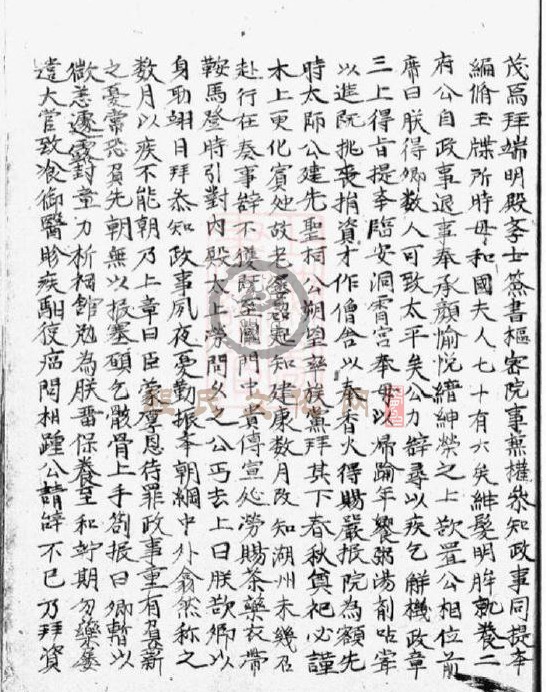 茂爲拜端明殿李士簽書樞宻院事無權叅知政事同提李
編脩玉牒所時母和國夫人七十有六矣紳髮明眸就養二
府公自政事退事奉承顔愉悅縉紳榮之上欲置公相位前
席曰朕得卿数人可致太平矣公力辭尋以疾乞解機政章
三上得旨提李臨安洞霄宮奉母以歸踰年饗粥湯劑咕甞
以進阮挑喪捐資才作僧舎以奉香火得賜嚴报院為額先
時太師公建先聖祠公朔望率族黨拜其下春秋奠祀必謹
木上更化賓処故老
起知建康数月改知湖州未幾召
赴行在奏事辭不獲既至國門中貴傳宣処勞賜茶藥衣帶
鞍馬登時引對内殿太上勞問夕之公丐去上曰朕欲卿以
身助翊日拜叅知政事夙夜憂勤振李朝綱中外翕然称之
数月以疾不能朝乃上章曰臣
恩待罪政事重有負新
之憂常恐負先朝無以报塞碩乞骸骨上手劄报曰卿暫以
微恙遽露封章力祈祠館勉為朕畱保養至和竚期勿藥屡
遣大官致飡御醫胗疾馹
問相踵公請辭不已乃拜資